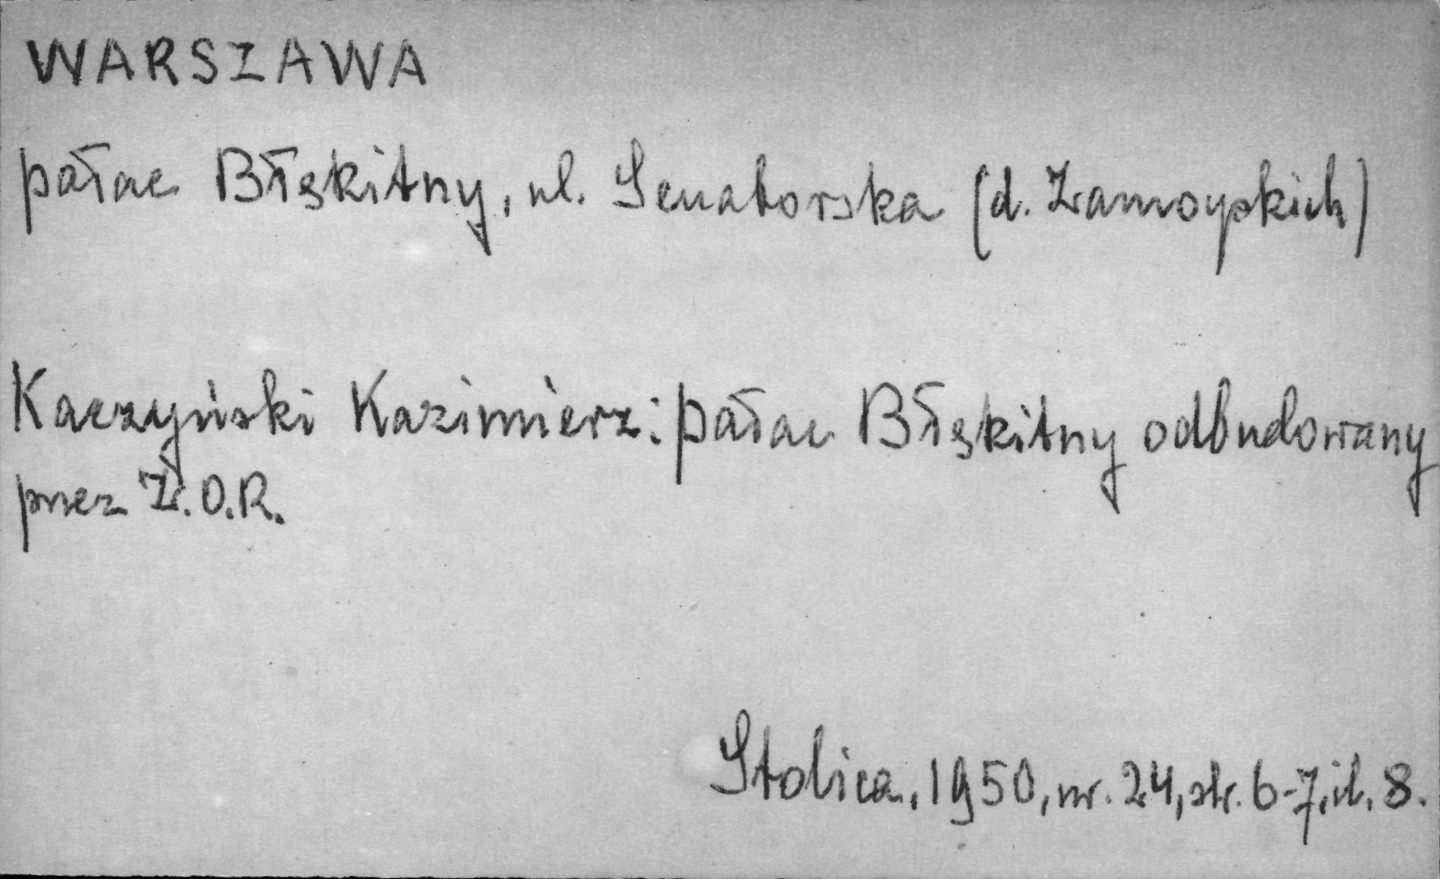 WARSZAWA
pałac Błękitny, ul. Senatorska (d. Zamoyskich)
Kaczyński Kazimierz: pałac Błękitny odbudowany
przez Z.O.R.
Stolica, 1950, nr. 24, str. 6-7, il. 8.